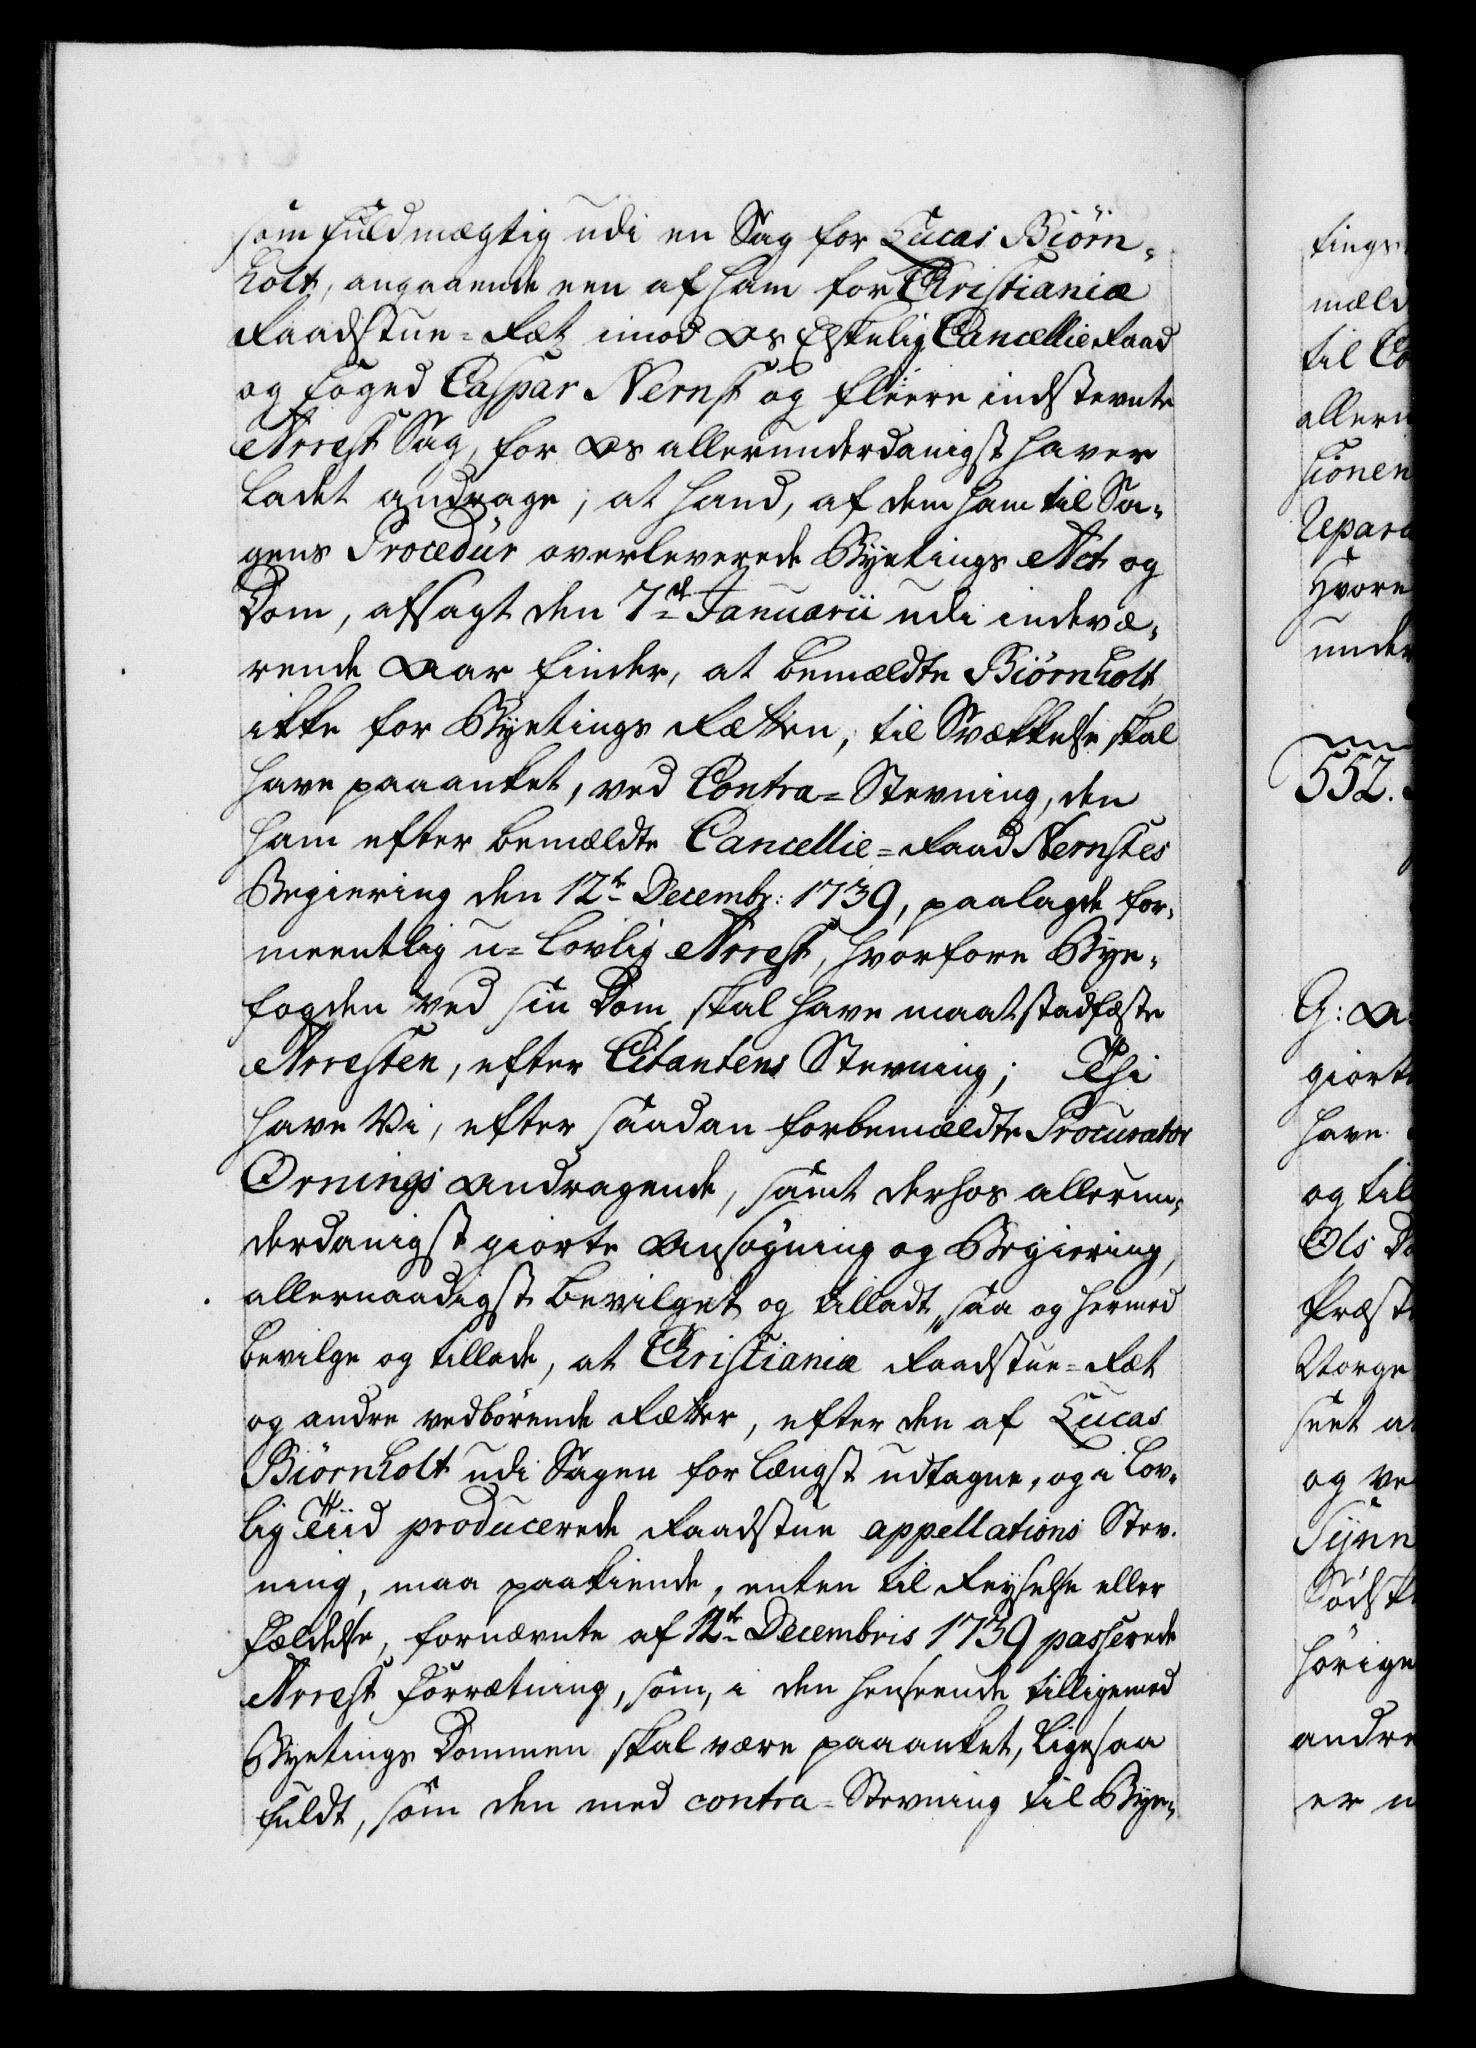 som Fuldmægtig udi en Sag for Lucas Biørn-
holt, angaaende een af ham for Christianiæ
Raadstue-Ræt imod Os Elskelig Cancellie Raad
og Foged Caspar Nernst og fleere indstevnte
Arrest Sag, for Os allerunderdanigst haver
ladet andrage; at hand, af dem ham til Sa-
gens Procedur overleverede Byetings Act og
Dom, afsagt den 7de Januarii udi indevæ-
rende Aar finder, at bemældte Biørnholt
ikke for Byetings Rætten, til Svækkelse skal
have paaanket, ved Contra-Stevning, den
ham efter bemældte Cancellie-Raad Nernstes
Begiering den 12te Decembr: 1739, paalagde for-
meentlig u-lovlig Arrest, hvorfore Bye-
fogden ved sin Dom skal have maat stadfæste
Arresten, efter Citantens Stevning; Thi
have Vi, efter saadan forbemældte Procurator
Ørnings Andragende, samt derhos allerun-
derdanigst giorte Ansøgning og Begiering,
allernaadigst bevilget og tilladt, saa og hermed
bevilge og tillade, at Christianiæ Raadstue-Ræt
og andre vedbørende Rætter, efter den af Lucas
Biørnholt udi Sagen for længst udtagne, og i lov-
lig Tiid producerede Raadstue appellations Stev-
ning, maa paakiende, enten til Reyselse eller
Fældelse, fornævnte af 12te Decembris 1739 passerede
Arrest Forrætning, som, i den henseende tilligemed
Byetings Dommen skal være paaanket, ligesaa
fuldt, som den med contra-Stevning til Bye-
tings
mæld
til Co
allern
sionen
Repara
Hvore
under
552.
G: A:
giort
have
og til
Ols D
Præst
Norge
seet at
og ve
Synn
Sødsk
hørige
andre
er u